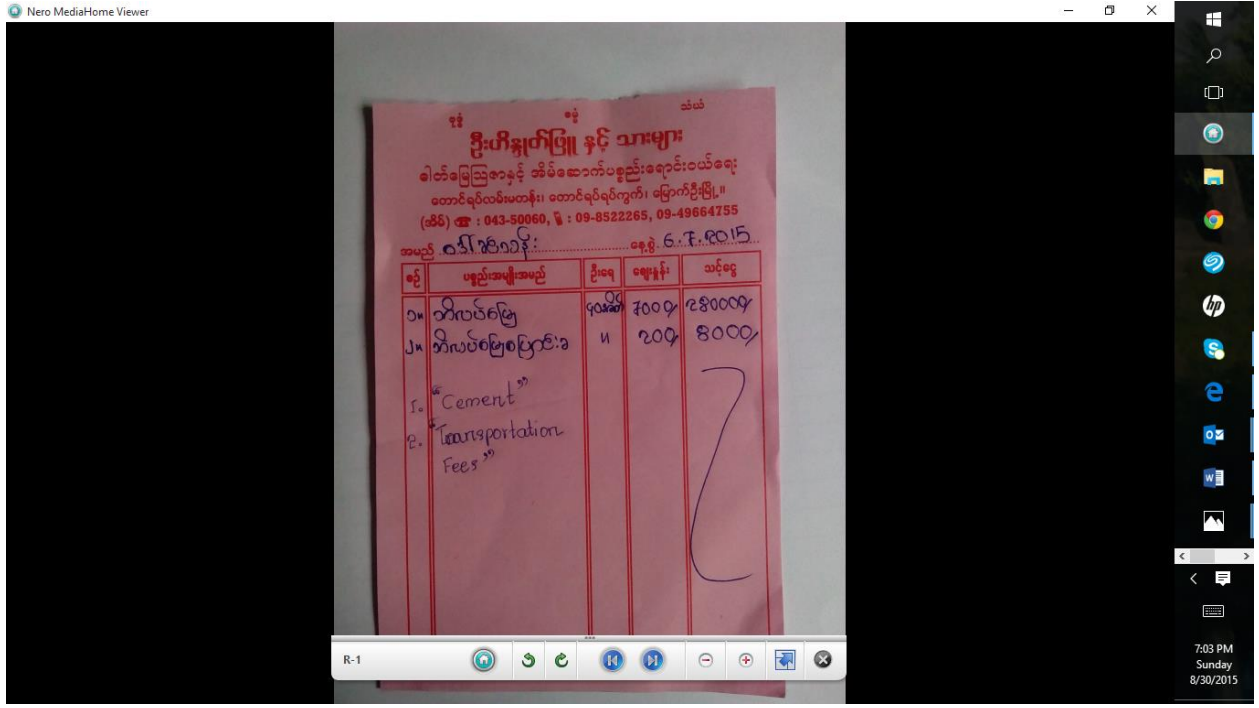 Nero MediaHome Viewer
ဗုဒ္ဓံ ဓမ္မံ သံဃံ
ဦးဟိန္ဒူတ်ဖြူ နှင့် သားများ
ဓါတ်မြေသြဇာနှင့် အိမ်ဆောက်ပစ္စည်းရောင်းဝယ်ရေး
တောင်ရပ်လမ်းမတန်း၊ တောင်ရပ်ရပ်ကွက်၊ မြောက်ဦးမြို့။
(အိမ်) ☎ : 043-50060, : 09-8522265, 09-49664755
အမည် နေ့စွဲ 6.7.2015
စဉ် ပစ္စည်းအမျိုးအမည် ဦးရေ ဈေးနှုန်း သင့်ငွေ
၁။ ဘိလပ်မြေ 7000/ 280000/
၂။ ဘိလပ်မြေစပြောင်းခ 〃 200/ 8000/
1. "Cement"
2. "Transportation
Fees"
R-1
7:03 PM
Sunday
8/30/2015